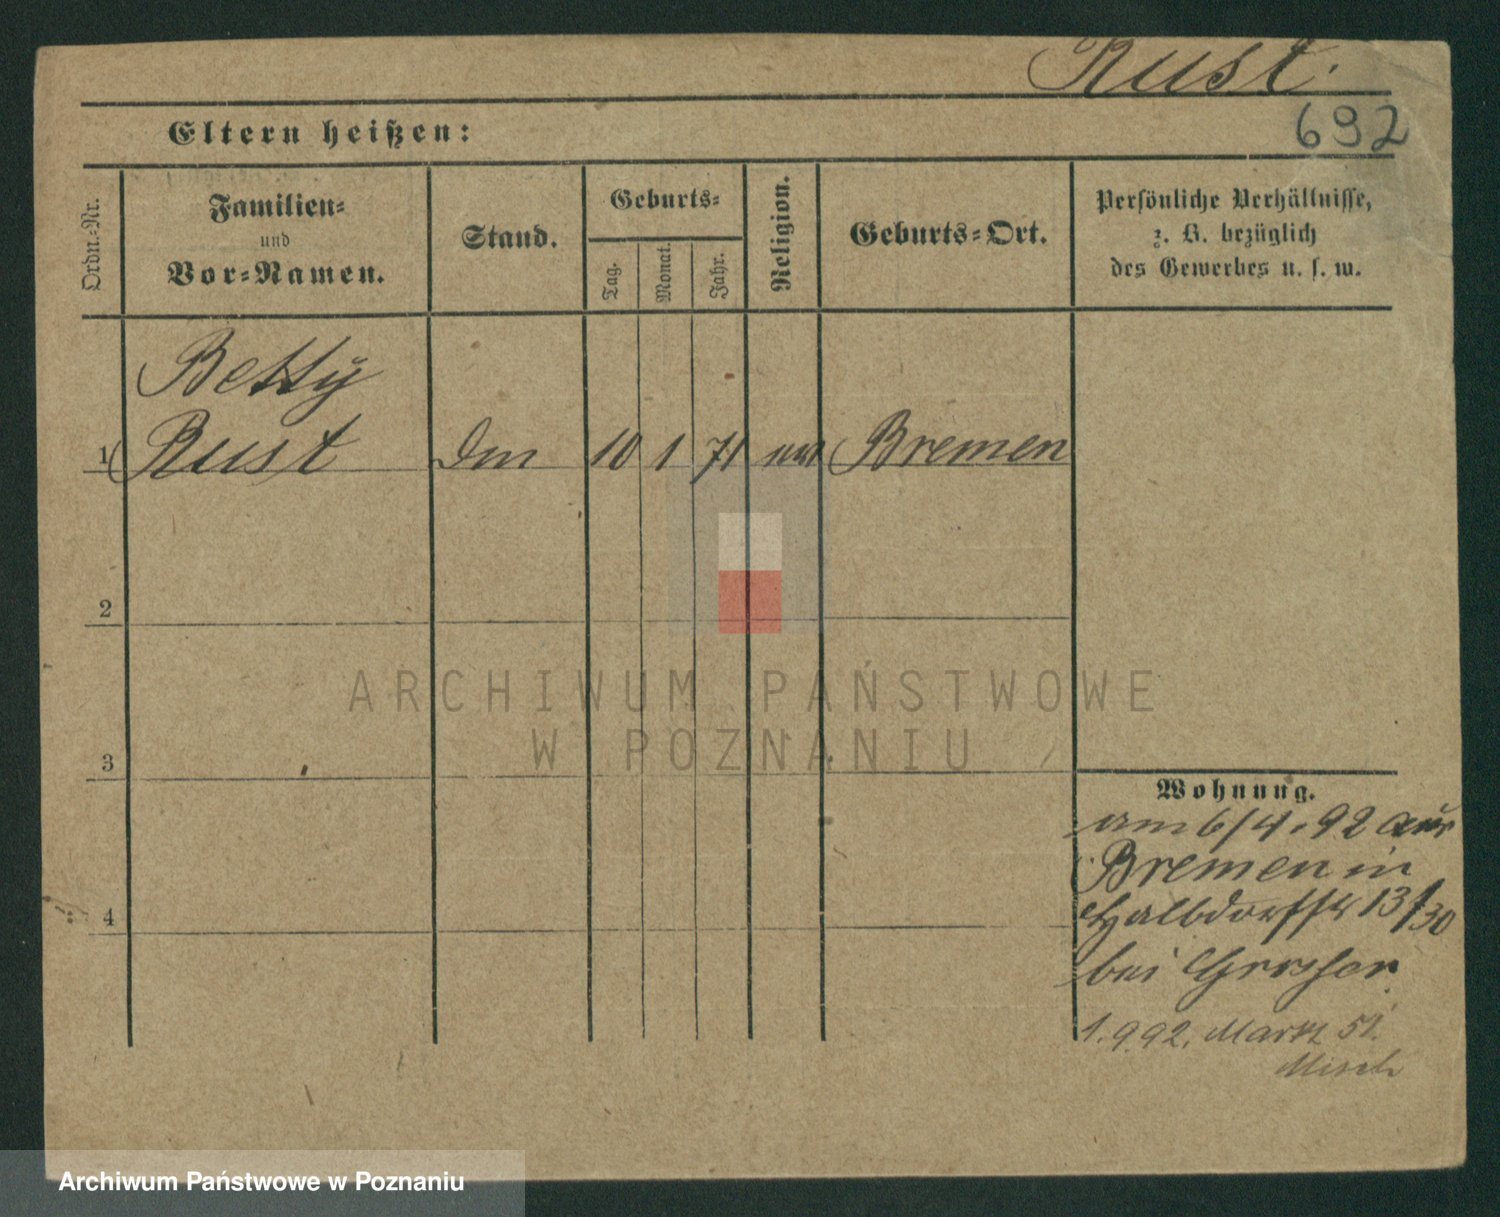 Rust.
692
Eltern heißen:
Ordn.-Nr.
Familien-
und
Vor-Namen.
Stand.
Geburts-
Tag.
Monat.
Jahr.
Religion.
Geburts-Ort.
Persönliche Verhältnisse,
z. B. bezüglich
des Gewerbes u. s. w.
Betty
1 Rust 10 1 71 Bremen
2
3
4
ARCHIWUM PAŃSTWOWE
W POZNANIU
Wohnung.
am 6/4.92 aus
Bremen in
Halbdorfstr 13/30
bei
1.9.92. Markt 51.
Misch
Archiwum Państwowe w Poznaniu